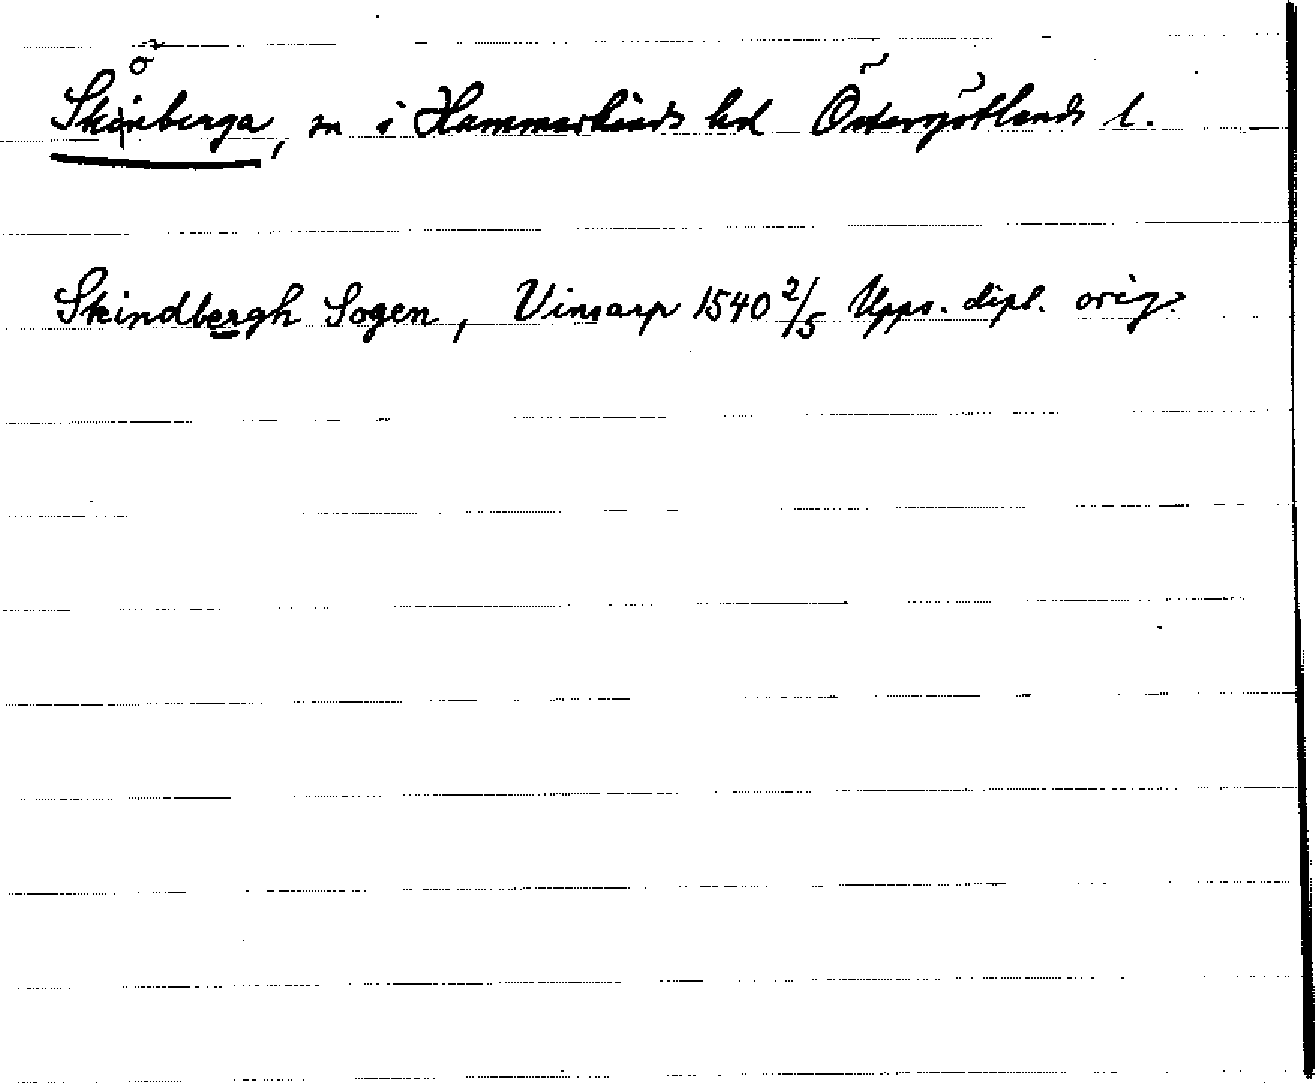 Skönberga, sn i Hammarkinds hd Östergötlands l.
Skindbergh Sogen, Vinsarp 1540 2/5 Upps. dipl. orig.